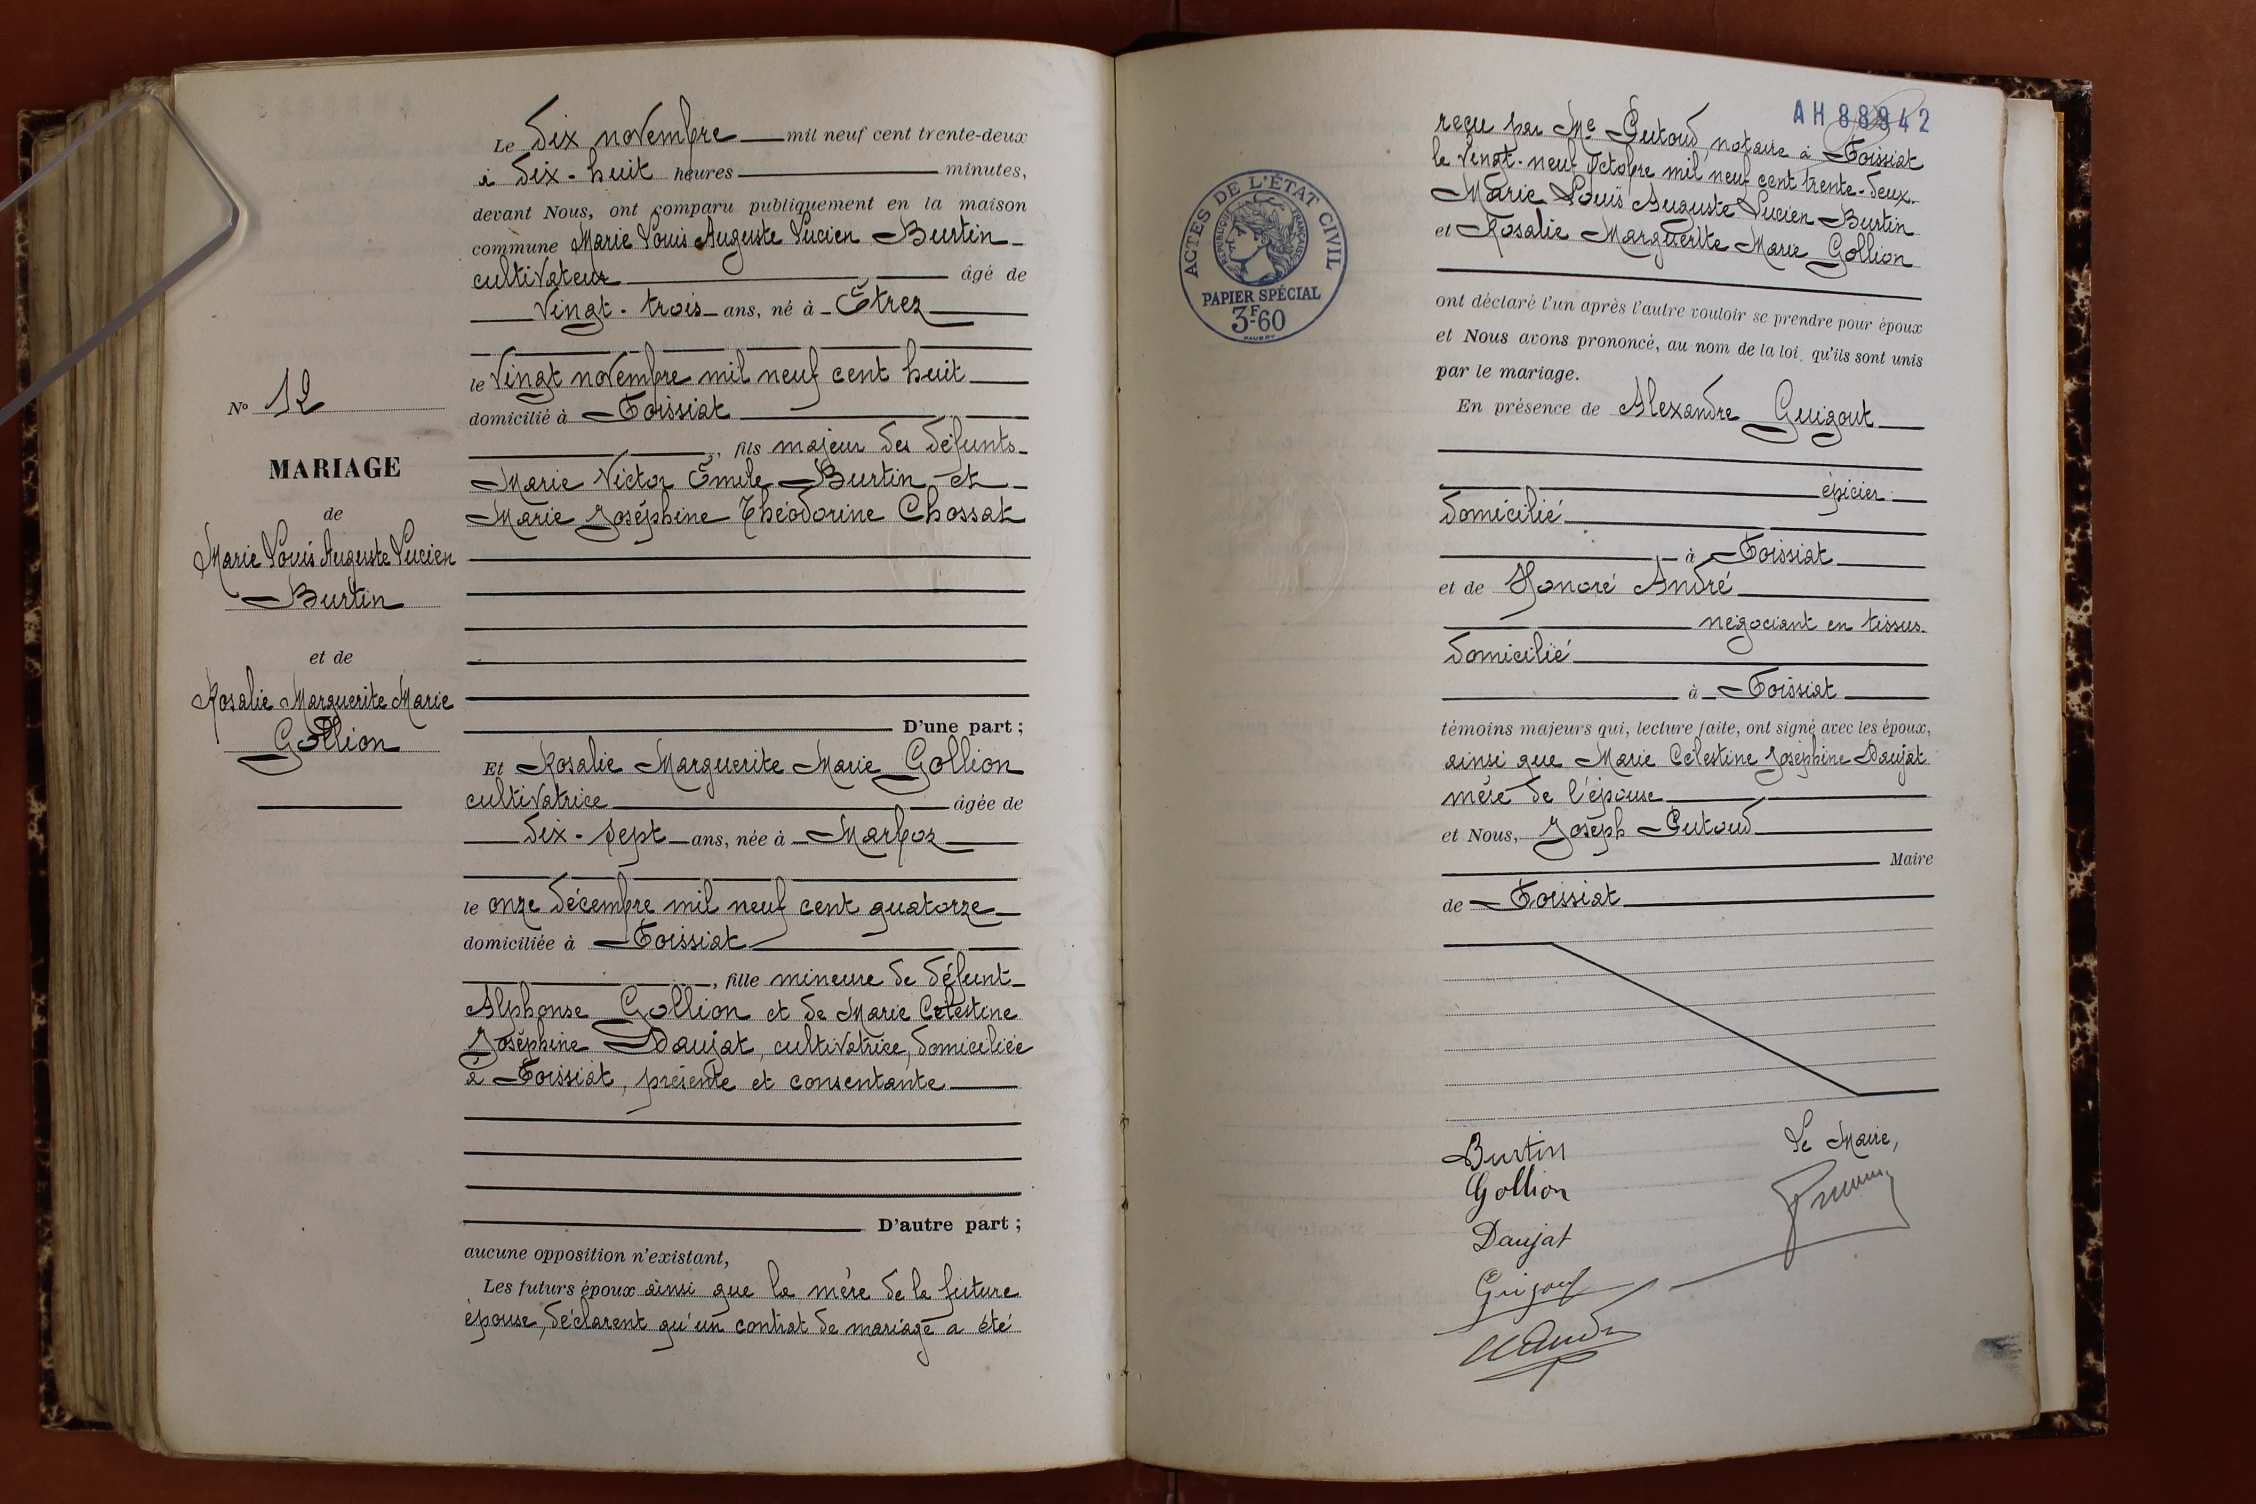 N° 12
MARIAGE
de
Marie Louis Auguste Lucien
Burtin
et de
Rosalie Marguerite Marie
Gollion
Le dix novembre mil neuf cent trente-deux
à dix-huit heures minutes,
devant Nous, ont comparu publiquement en la maison
commune Marie Louis Auguste Lucien Burtin
cultivateur âgé de
vingt-trois ans, né à Étrez
le vingt novembre mil neuf cent huit
domicilié à Foissiat
, fils majeur des défunts
Marie Victor Émile Burtin et
Marie Joséphine Théodorine Chossat
D'une part ;
Et Rosalie Marguerite Marie Gollion
cultivatrice âgée de
dix-sept ans, née à Marboz
le onze décembre mil neuf cent quatorze
domiciliée à Foissiat
, fille mineure de défunt
Alphonse Gollion et de Marie Célestine
Joséphine Daujat, cultivatrice, domiciliée
à Foissiat, présente et consentante
D'autre part ;
aucune opposition n'existant,
Les futurs époux ainsi que la mère de la future
épouse, déclarent qu'un contrat de mariage a été
AH 88942
ACTES DE L'ÉTAT CIVIL
RÉPUBLIQUE FRANÇAISE
PAPIER SPÉCIAL
3F60
reçu par Me Putoud, notaire à Foissiat
le vingt-neuf octobre mil neuf cent trente-deux.
Marie Louis Auguste Lucien Burtin
et Rosalie Marguerite Marie Gollion
ont déclaré l'un après l'autre vouloir se prendre pour époux
et Nous avons prononcé, au nom de la loi, qu'ils sont unis
par le mariage.
En présence de Alexandre Guigout
épicier
domicilié
à Foissiat
et de Honoré André
négociant en tissus
domicilié
à Foissiat
témoins majeurs qui, lecture faite, ont signé avec les époux,
ainsi que Marie Célestine Joséphine Daujat
mère de l'épouse
et Nous, Joseph Putoud
Maire
de Foissiat
Burtin
Le Maire,
Gollion
Daujat
Guigout